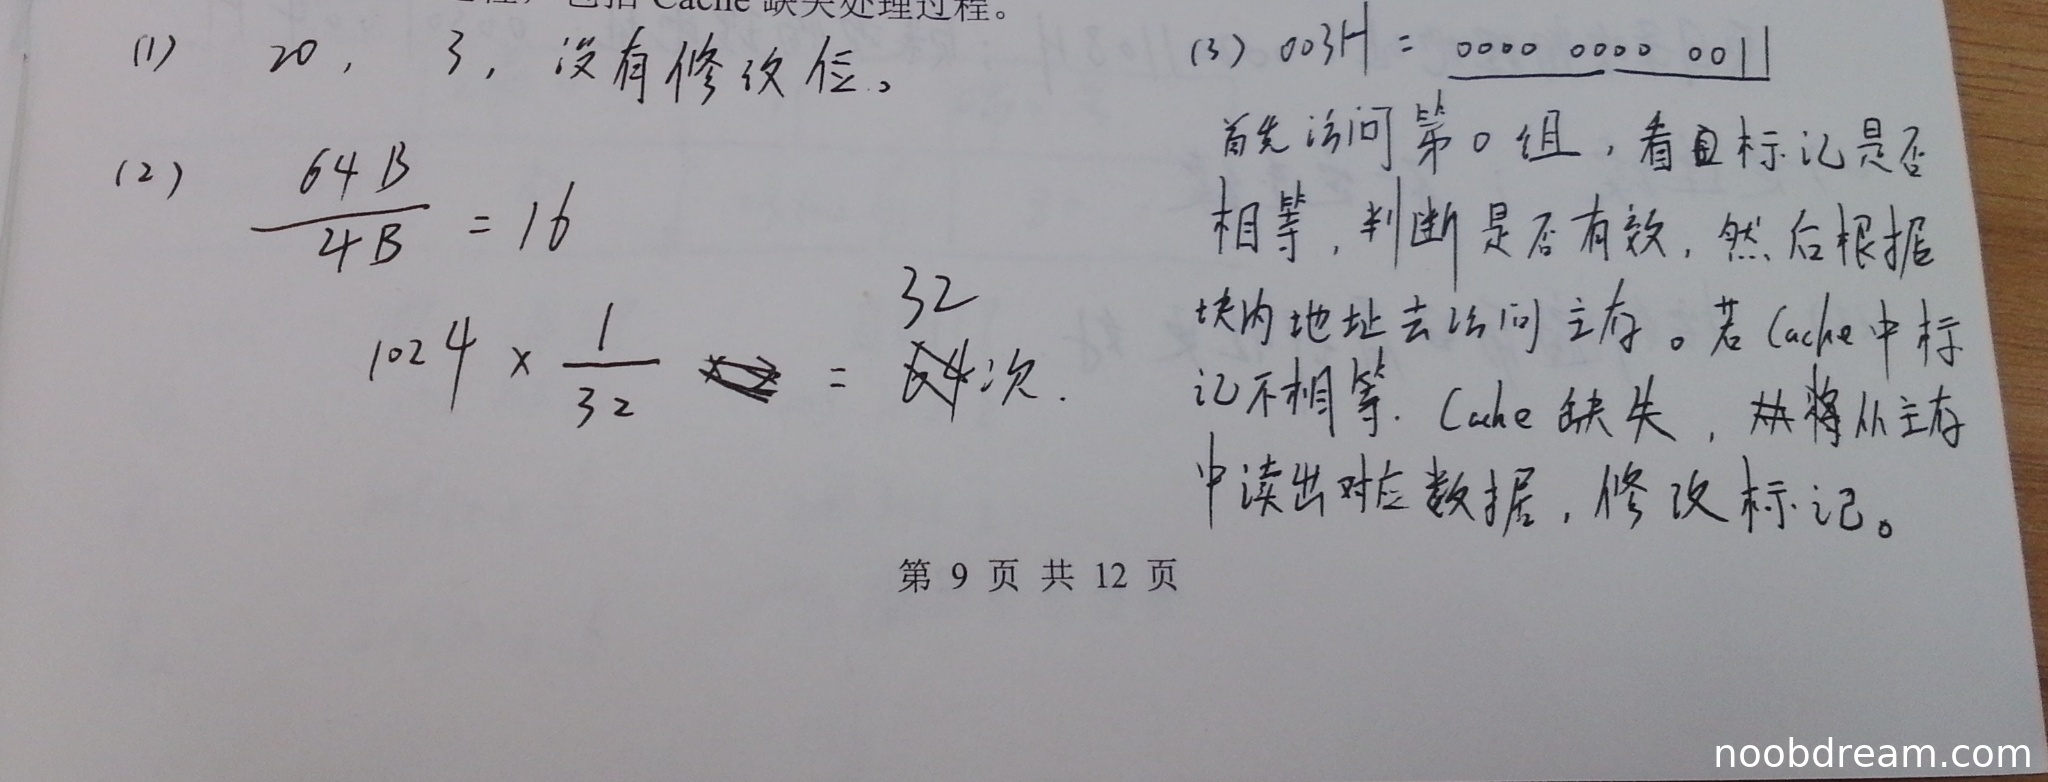 包括 Cache 缺失处理过程。
(1) 20, 3, 没有修改位。
(2) 64B / 4B = 16
1024 × 1/32 = 32次.
(3) 003H = 0000 0000 0011
首先访问第0组，看标记是否
相等，判断是否有效，然后根据
块内地址去访问主存。若Cache中标
记不相等. Cache缺失，将从主存
中读出对应数据，修改标记。
第 9 页 共 12 页
noobdream.com